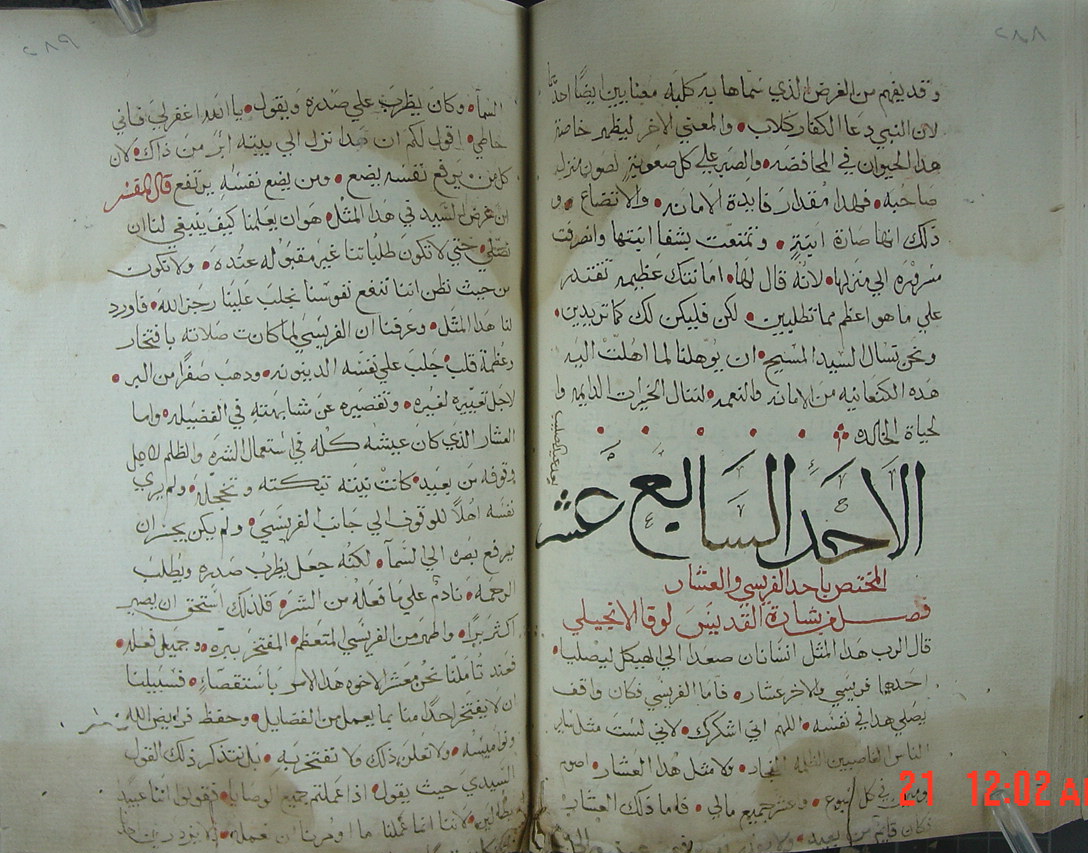 ٢٨٨
وقد يفهم من الغرض الذي سماها به كلمه معنايين ايضًا احدهما
لان النبي دعا الكفار كلاب والمعني الاخر ليظهر خاصة
هذا الحيوان في المحافضه والصبر علي كل صعوبة لصون منزل
صاحبه فهذا مقدار فايدة الامانه والاتضاع و
ذلك انها صارة ابنة وتمتعت بشفا ابنتها وانصرفت
مسرورة الي منزلها لانه قال لها امانتك عظيمه تقتدر
علي ما هو اعظم مما تطلبين لكن فليكن لك كما تريدين
ونحن نسال السيد المسيح ان يوهلنا لما اهلت اليه
هذه الكنعانيه من الامانه والنعمه لننال الخيرات الدايمه وا
لحياة الخالده
الاحد السابع عشر
المختص باحد الفريسي والعشار
فصل من بشارة القديس لوقا الانجيلي
قال الرب هذا المثل انسانان صعدا الي الهيكل ليصليا
احدهما فريسي والاخر عشار فاما الفريسي فكان واقف
يصلي هذا في نفسه اللهم اني اشكرك لاني لست مثل ساير
الناس الغاصبين الظلمه الفجار ولا مثل هذا العشار اصوم
في كل وعشر جميع مالي فاما ذلك العشار
فكان قايم من بعيد
٢٨٩
السمآ وكان يظرب علي صدره ويقول يا الله اغفر لي فاني
خاطي اقول لكم ان هذا نزل الي بيته ابر من ذاك لان
كل من يرفع نفسه يضع ومن يضع نفسه يرتفع قال المفسر
ان غرض السيد في هذا المثل هو ان يعلمنا كيف ينبغي لنا ان
نصلي حتي لا تكون طلباتنا غير مقبوله عنده ولا تكون
من حيث نظن اننا ننفع نفوسنا نجلب علينا رجز الله فاورد
لنا هذا المثل وعرفنا ان الفريسي لما كانت صلاته بافتخار
وعظمة قلب جلب علي نفسه الدينونه وذهب صفرًا من البر
لاجل تعييره لغيره وتقصيره عن مشابهته في الفضيله واما
العشار الذي كان عيشه كله في استعمال الشره والظلم لاجل
وقوفه من بعيد كانت نيته تبكته وتخجله ولم يري
نفسه اهلًا للوقوف الي جانب الفريسي ولم يكن يجسر ان
يرفع بصره الي السمآ لكنه جعل يظرب صدره ويطلب
الرحمه نادم علي ما فعله من الشر فلذلك استحق ان يصير
اكثر برًا واطهر من الفريسي المتعظم المفتخر ببره وجميل فعله
فعند تاملنا نحن معشر الاخوه هذا الامر باستقصاءٍ فسبيلنا
ان لا يفتخر احدًا منا بما يعمل من الفضايل وحفظ فرايض الله
ونواميسه ولا تعلن ذلك ولا تفتخر به بل نتذكر ذلك القول
السيدي حيث يقول اذا عملتم جميع الوصايا فقولوا اننا عبيد
بطالين لاننا انما عملنا ما اومرنا ان نعمله